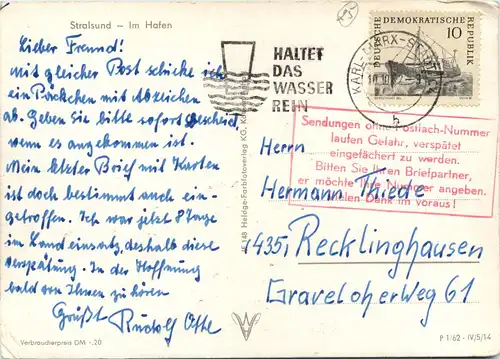 Stralsund – Im Hafen
Lieber Freund!
mit gleicher Post schicke ich
ein Päckchen mit Abzeichen
ab. Geben Sie bitte sofort Bescheid,
wenn es angekommen ist.
Mein letzter Brief mit Karten
ist doch bestimmt auch ein-
getroffen. Ich war jetzt 8 Tage
im Landeinsatz, deshalb diese
Verspätung. In der Hoffnung
bald von Ihnen zu hören
Grüßt Rudolf
Verbraucherpreis DM -,20
HALTET
DAS
WASSER
REIN
KARL-MARX-
h
DEUTSCHE DEMOKRATISCHE REPUBLIK
10
Sendungen ohne Postfach-Nummer
laufen Gefahr, verspätet
eingefächert zu werden.
Bitten Sie Ihren Briefpartner,
er möchte Ihre Nummer angeben.
Vielen Dank im voraus!
Herrn
Hermann Thiede
4351 Recklinghausen
Graveloherweg 61
P 1/62 - IV/5/14